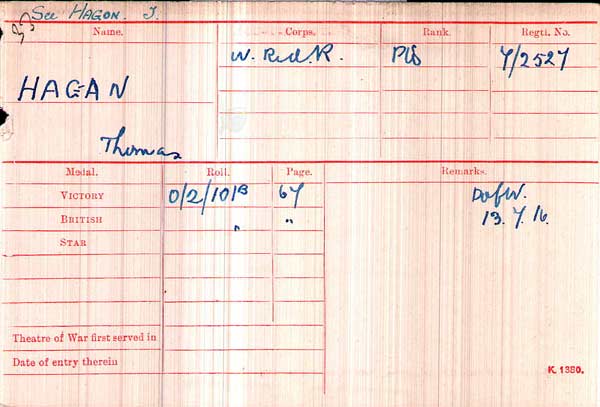 See HAGON. J.
Name. Corps. Rank. Regtl. No.
W. Rid. R. Pte 7/2527
HAGAN
Thomas
Medal. Roll. Page. Remarks.
VICTORY O/2/101B 67 D of W.
BRITISH " " 13.7.16.
STAR
Theatre of War first served in
Date of entry therein
K. 1380.